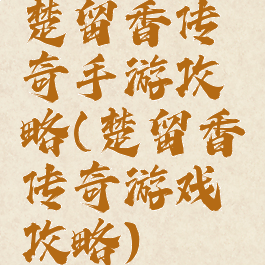 楚留香传
奇手游攻
略(楚留香
传奇游戏
攻略)